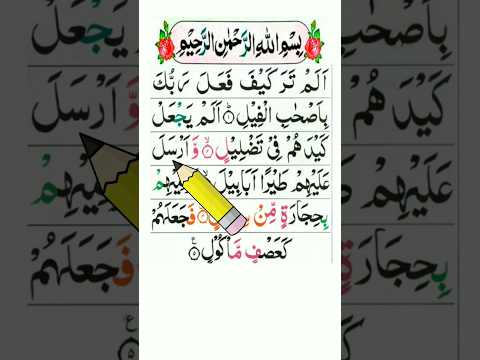 بِسْمِ اللهِ الرَّحْمٰنِ الرَّحِيْمِ
اَلَمْ تَرَ كَيْفَ فَعَلَ رَبُّكَ
بِاَصْحٰبِ الْفِيْلِ ۝۱ اَلَمْ يَجْعَلْ
كَيْدَهُمْ فِيْ تَضْلِيْلٍ ۝۲ وَّ اَرْسَلَ
عَلَيْهِمْ طَيْرًا اَبَابِيْلَ
بِحِجَارَةٍ مِّنْ فَجَعَلَهُمْ
كَعَصْفٍ مَّاْكُوْلٍ ۝۵